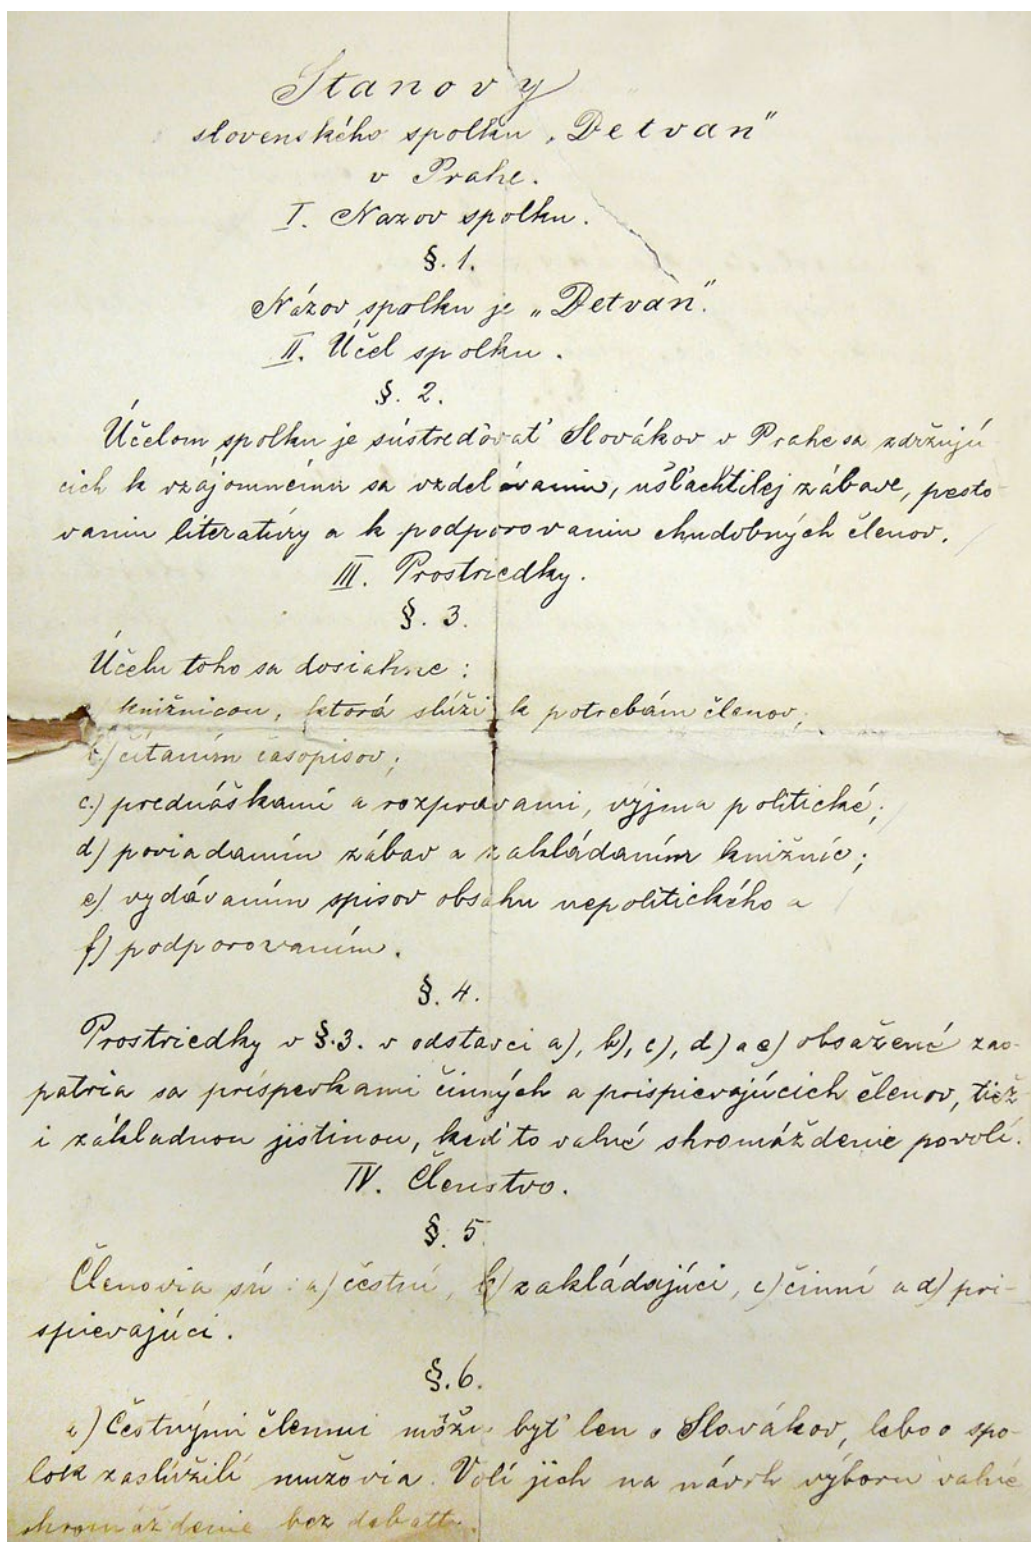 Stanovy
slovenského spolku „Detvan"
v Prahe.
I. Nazov spolku.
§. 1.
Názov spolku je „Detvan".
II. Účel spolku.
§. 2.
Účelom spolku je sústreďovať Slovákov v Prahe sa zdržujú
cich k vzájomnému sa vzdelávaniu, ušľachtilej zábave, pesto-
vaniu literatúry a k podporovaniu chudobných členov.
III. Prostriedky.
§. 3.
Účelu toho sa dosiahne:
knižnicou, ktorá slúži k potrebám členov;
b) čítaním časopisov;
c.) prednáškami a rozpravami, výjma politické;
d) poriadaním zábav a zakládaním knižníc;
e) vydávaním spisov obsahu nepolitického a
f) podporovaním.
§. 4.
Prostriedky v §.3. v odstavci a), b), c), d) a e) obsažené zao-
patria sa príspevkami činných a prispievajúcich členov, tiež
i základnou jistinou, keď to valné shromáždenie povolí.
IV. Členstvo.
§. 5
Členovia sú: a) čestní, b) zakládajúci, c) činní a d) pri-
spievajúci.
§. 6.
a) Čestnými členmi môžu byť len o Slovákov, lebo o spo-
lok zaslúžilí mužovia. Volí jich na návrh výboru valné
shromáždenie bez debatty.